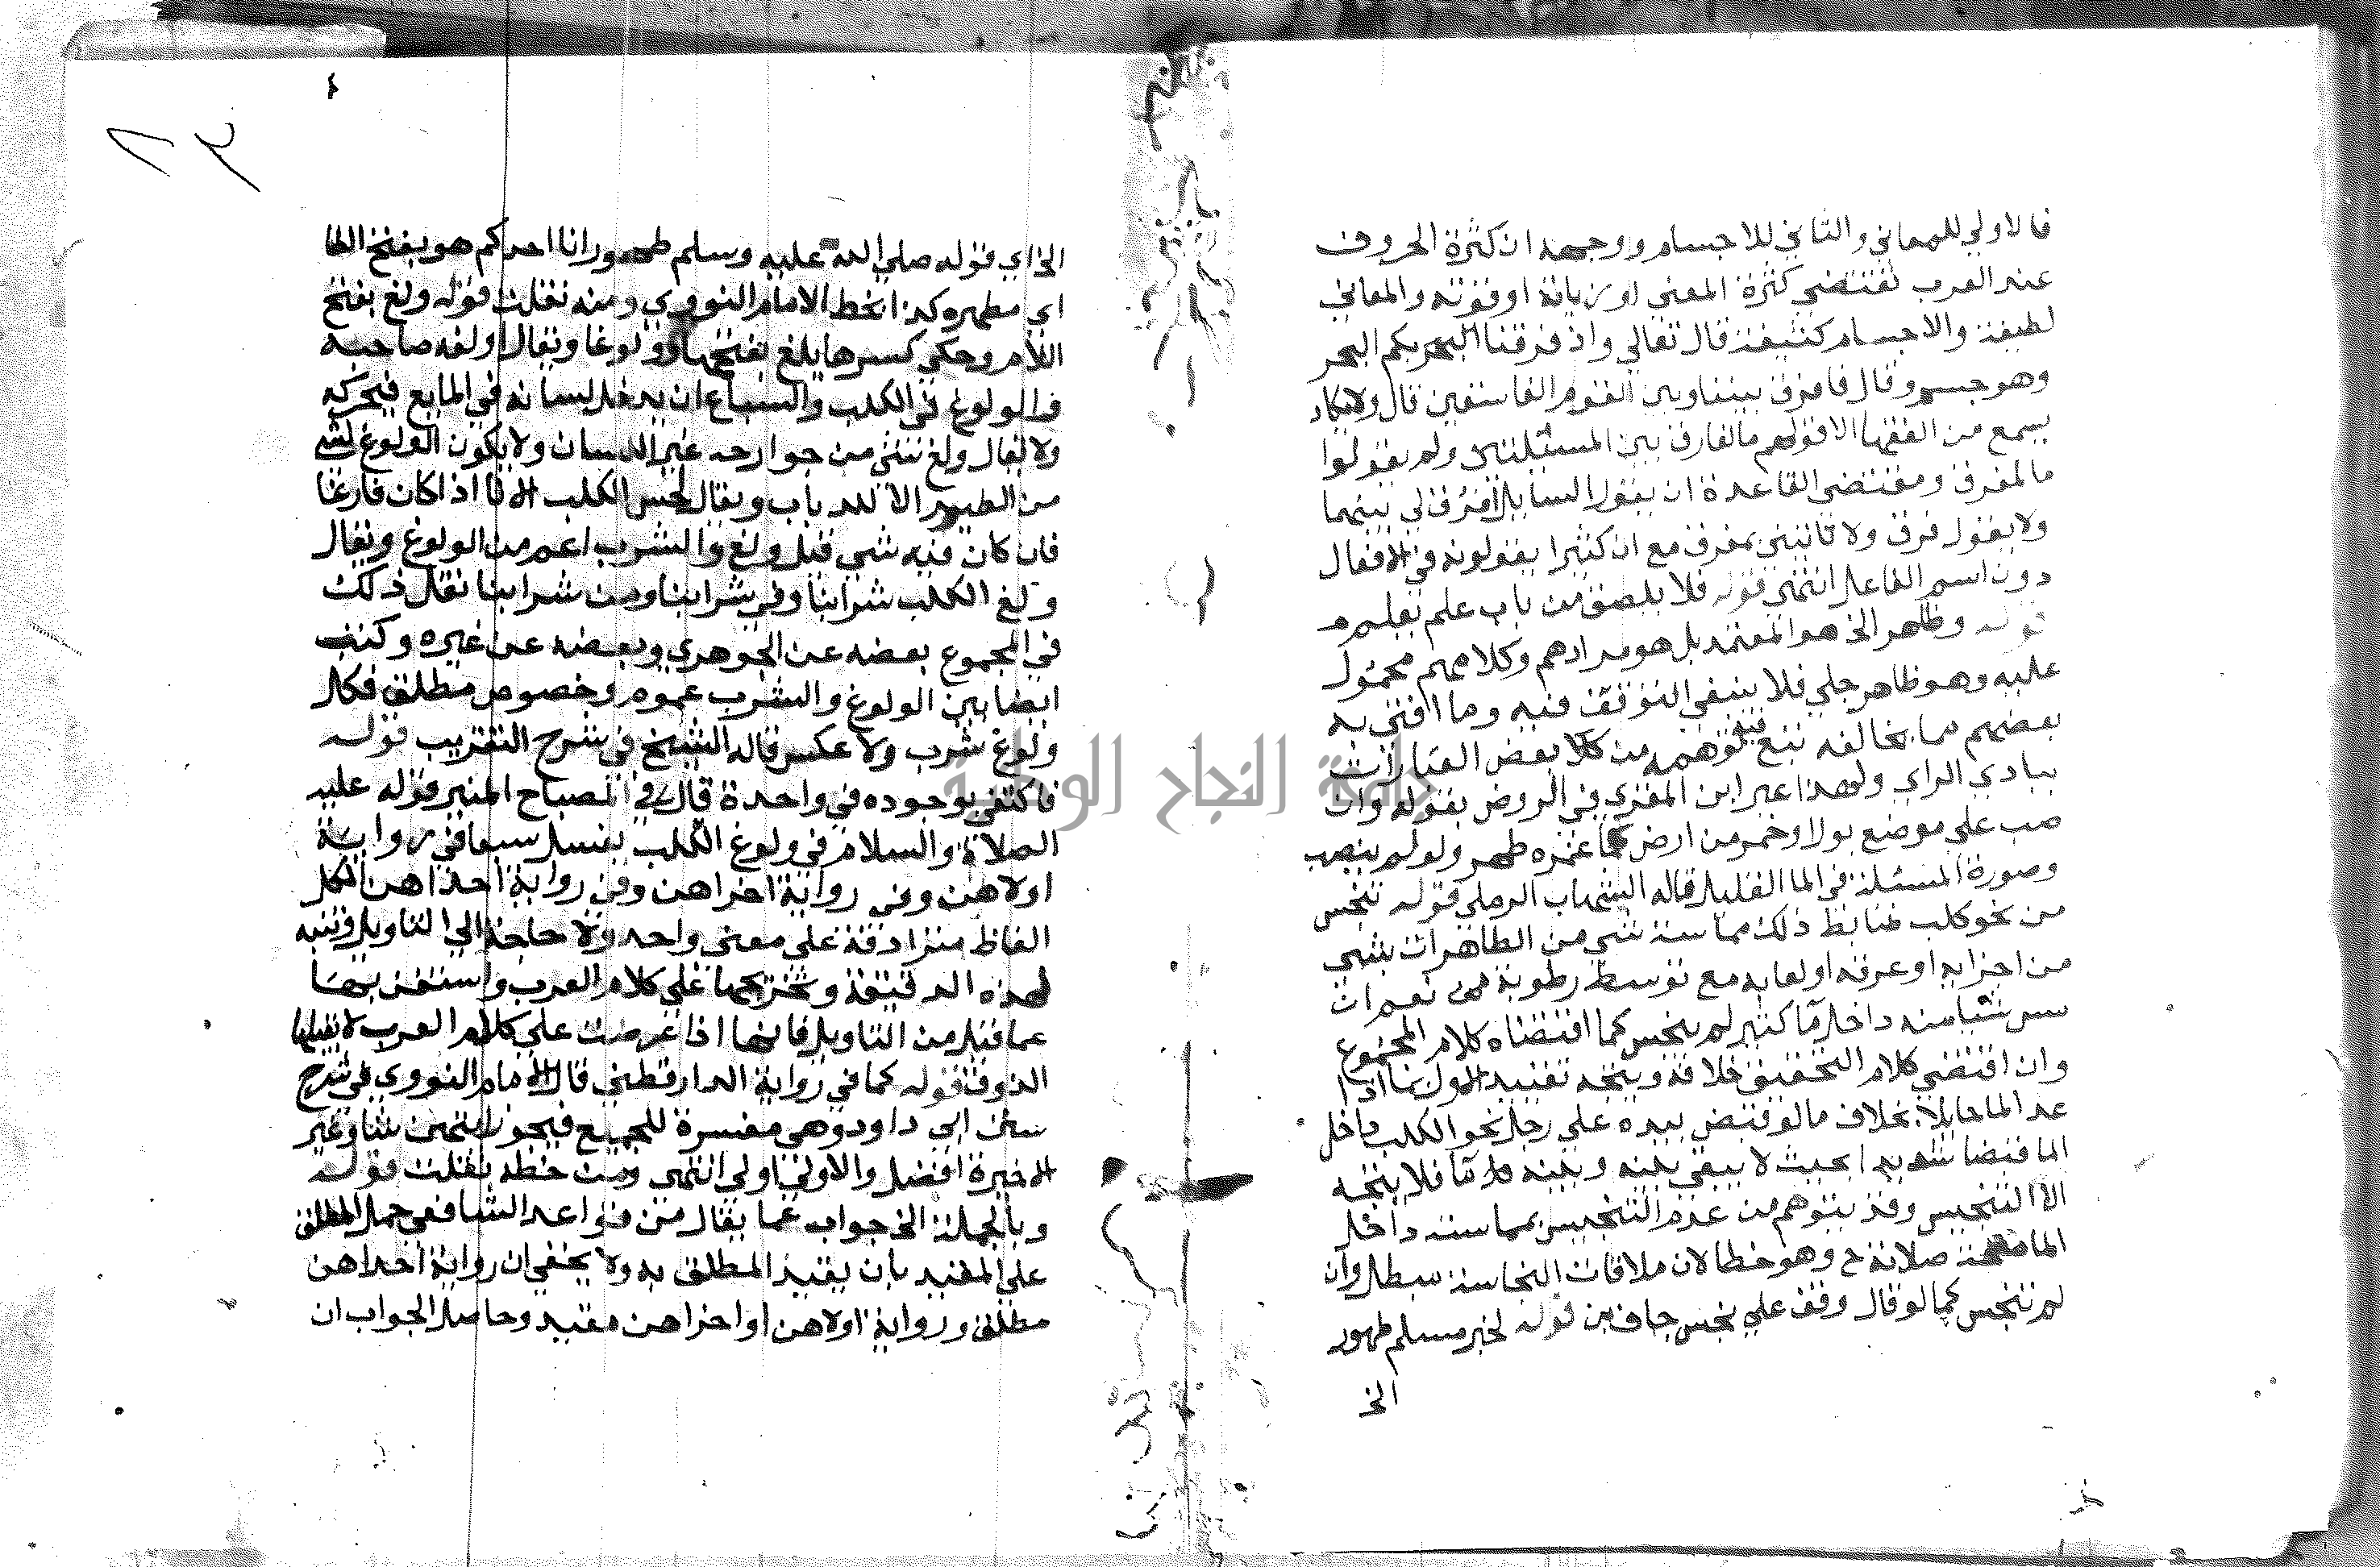 فالاولي للمعاني والثاني للاجسام ووجهه ان كثرة الحروف
عند العرب تقتضي كثرة المعني او زيادة او قوته والمعاني
لطيفة والاجسام كثيفة قال تعالي واذ فرقنا بكم البحر
وهو جسم وقال فافرق بيننا وبين القوم الفاسقين قال ولا يكاد
يسمع من الفقها الا قولهم ما الفارق بين المسئلتين ولم يقولوا
ما المفرق ومقتضي القاعدة ان يقول السايل افرق لي بينهما
ولا يقول فرق ولا تاتيني بمفرق مع ان كثيرا يقولونه في الافعال
دون اسم الفاعل انتهي قوله فلا يلصق من باب علم يعلم
قوله وظاهر الخ هو المعتمد بل هو مرادهم وكلامهم محمول
عليه وهو ظاهر جلي فلا ينبغي التوقف فيه وما افتي به
بعضهم مما يخالفه تبع فيه توهمه من كلا بعض العبارات
ببادي الراي ولهذا عبر ابن المقري في الروض بقوله وان
صب علي موضع بول او خمر من ارض ما غمره طهر ولو لم ينصب
وصورة المسئلة في الما القليل قاله الشهاب الرملي قوله تنجس
من نحو كلب ضابط ذلك مماسة شي من الطاهرات بشي
من اجزايه او عرقه او لعابه مع توسط رطوبة نعم ان
مس شيا منه داخل ما كثير لم ينجس كما اقتضاه كلام المجموع
وان اقتضي كلام التحقيق خلافه ويتجه تقييد الاول بما اذا
عد الما حايلا بخلاف ما لو قبض بيده علي رجل نحو الكلب داخل
الما قبضا شديدا بحيث لا يبقي بينه وبينه ما فلا يتجه
الا التنجيس وقد يتوهم من عدم التنجيس بمماسته داخل
الما صحة صلاته ح وهو خطا لان ملاقات النجاسة مبطل وان
لم تنجس كما لو قال وقف علي نجس جاف قوله لخبر مسلم طهور
الخ
٤
الخ اي قوله صلي الله عليه وسلم طهور انا احدكم هو بفتح الطا
اي مطهره كذا بخط الامام النووي ومنه نقلت قوله ولغ بفتح
اللام وحكي كسرها يلغ بفتحها ولوغا ويقال اولغه صاحبه
فالولوغ في الكلب والسباع ان يدخل لسانه في المايع فيحركه
ولا يقال ولغ بشي من جوارحه غير اللسان ولا يكون الولوغ لشي
من الطير الا للذباب ويقال لحس الكلب الانا اذا كان فارغا
فان كان فيه شي قيل ولغ والشرب اعم من الولوغ ويقال
ولغ الكلب شرابنا وفي شرابنا ومن شرابنا نقل ذلك
في المجموع بعضه عن الجوهري وبعضه عن غيره وكتب
ايضا بين الولوغ والشرب عموم وخصوص مطلق فكل
ولوغ شرب ولا عكس قاله الشيخ في شرح التقريب قوله
فاكتفي بوجوده في واحدة قال في المصباح المنير قوله عليه
الصلاة والسلام في ولوغ الكلب يغسل سبعا في رواية
اولاهن وفي رواية اخراهن وفي رواية احداهن الكل
الفاظ مترادفة علي معني واحد ولا حاجة الي التاويل وتنبه
لهذه الدقيقة وتخريجها علي كلام العرب واستغن بها
عما قيل من التاويل فانها اذا عرضت علي كلام العرب لا تقبلها
الذوق قوله كما في رواية الدارقطني قال الامام النووي في شرح
سنن ابي داود وهي مفسرة للجميع فيجوز ايتهن شا وغير
الاخيرة افضل والاولي اولي انتهي ومن خطه نقلت قوله
وبالجملة الخ جواب عما يقال من قواعد الشافعي حمل المطلق
علي المقيد بان يقيد المطلق به ولا يخفي ان رواية احداهن
مطلق ورواية اولاهن او اخراهن مقيد وحاصل الجواب ان
جامعة النجاح الوطنية